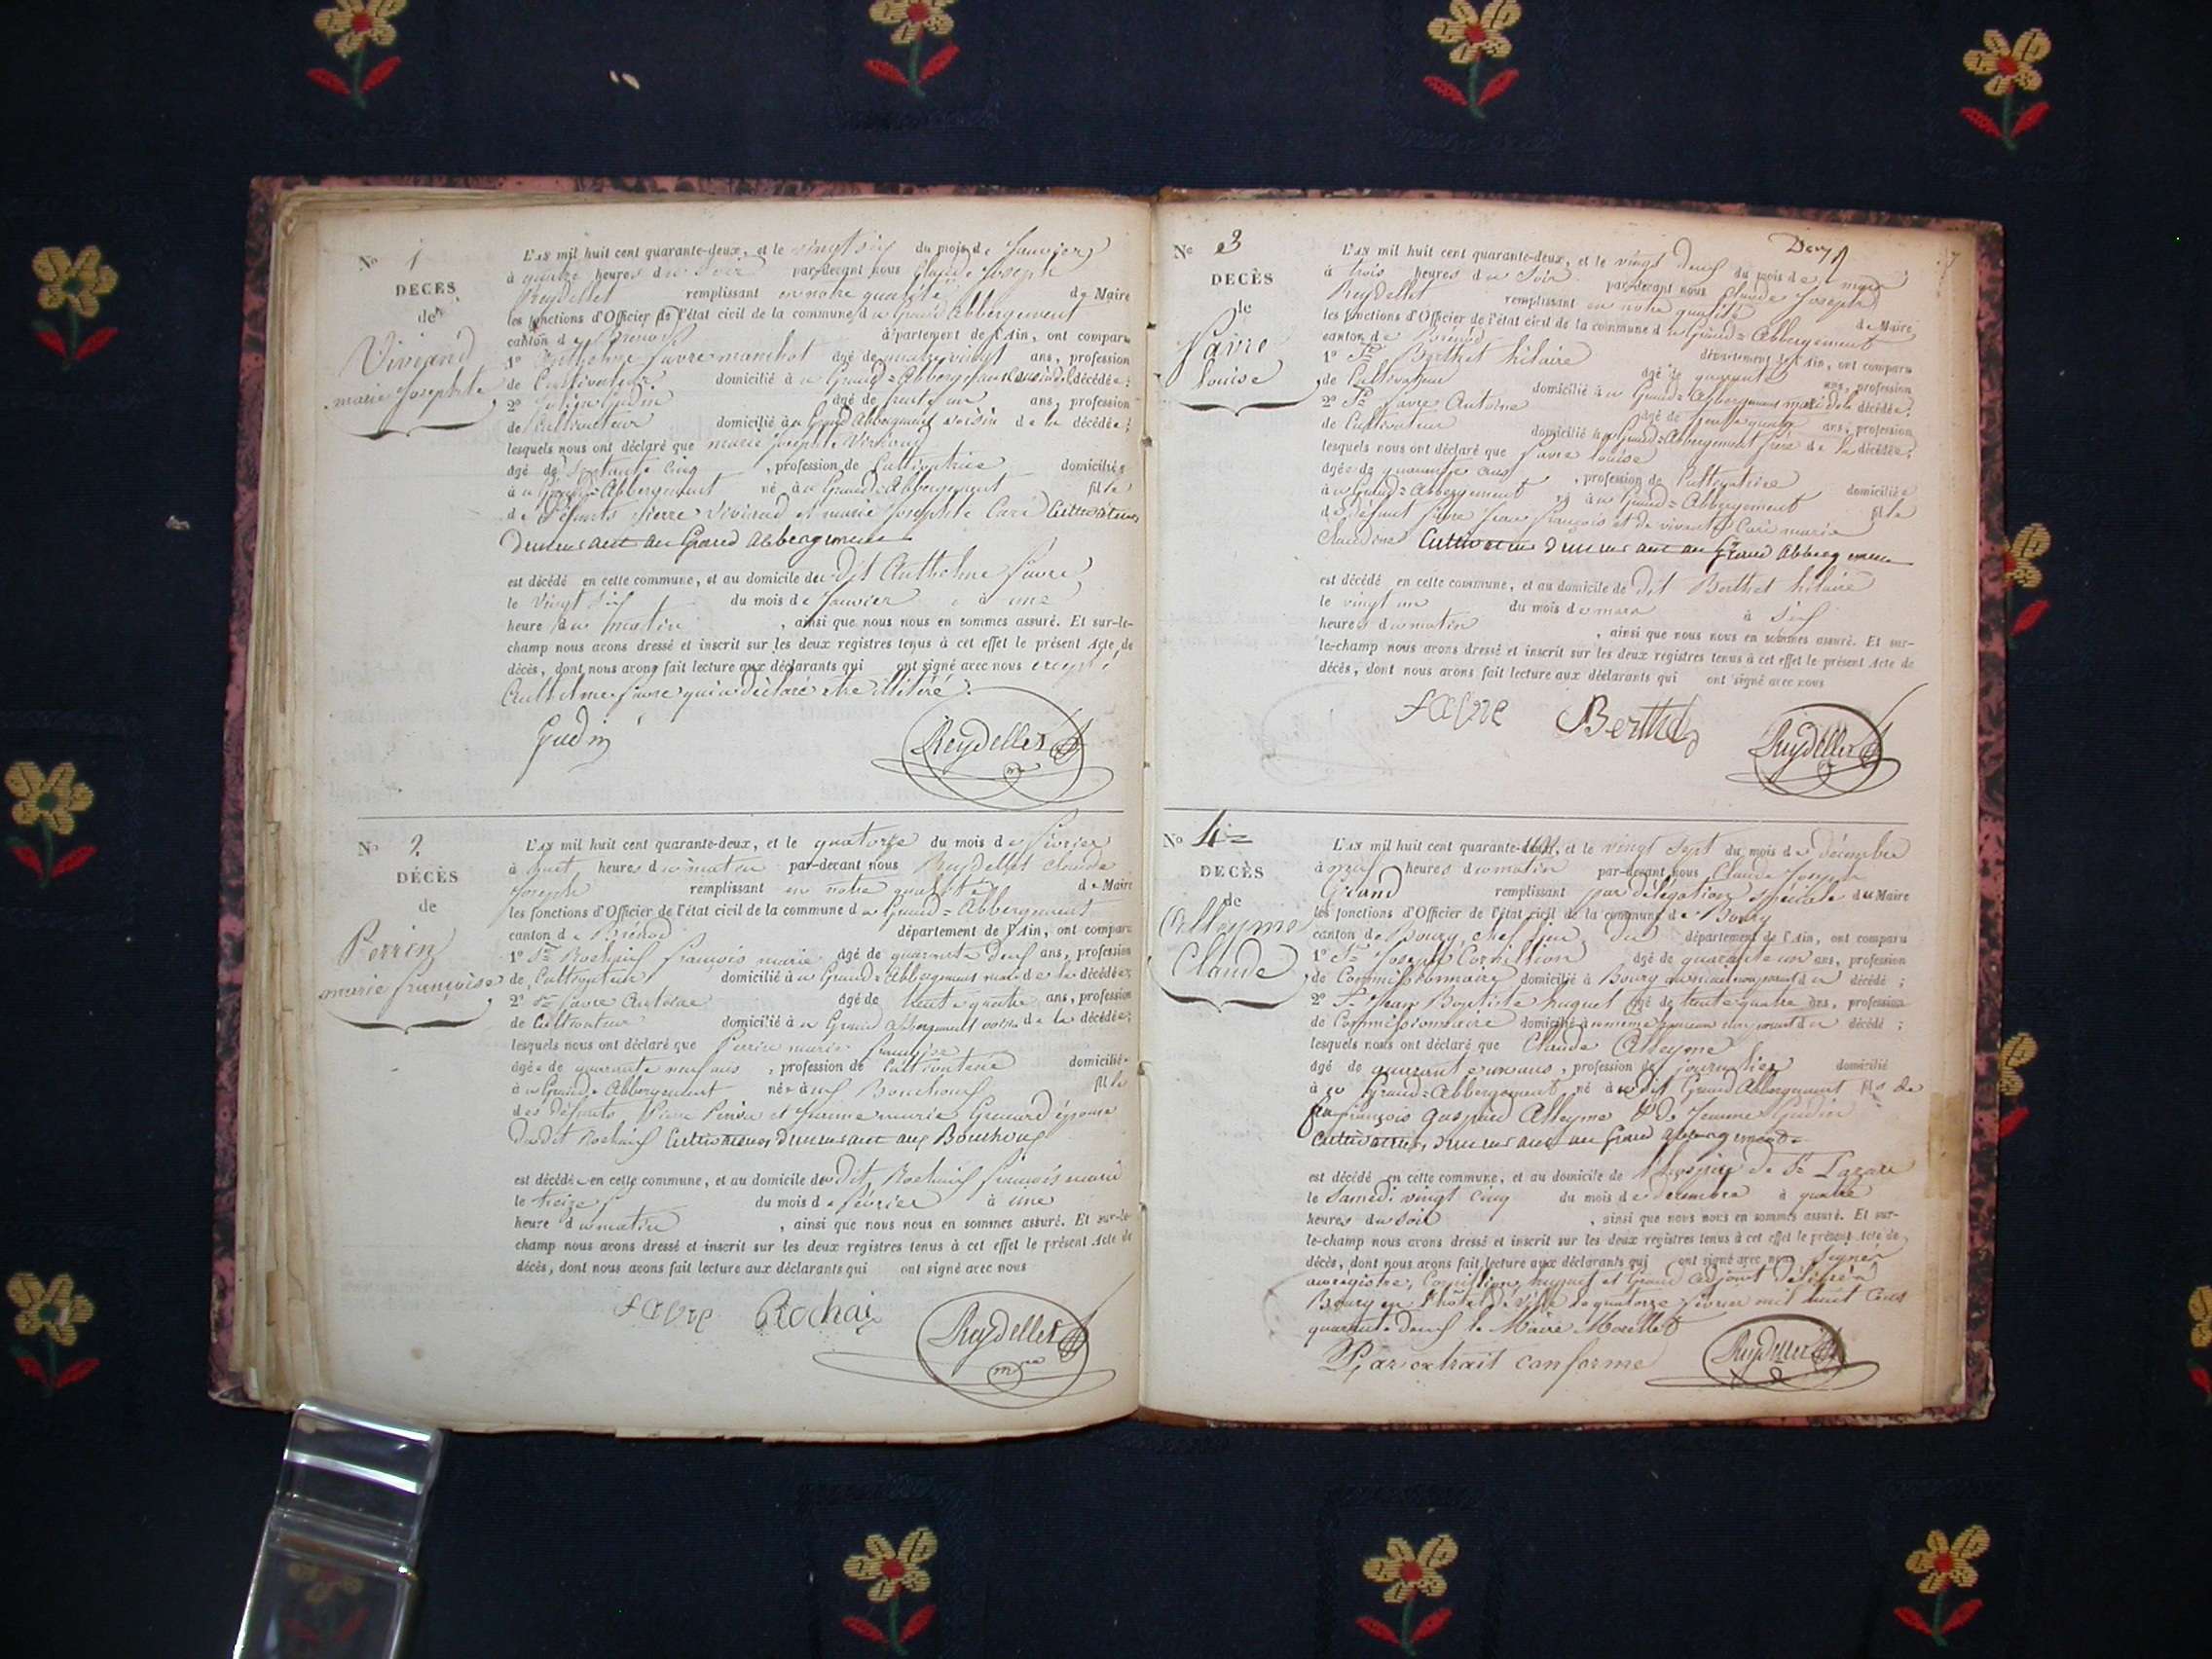 No 1
DÉCÈS
de
Viviand
marie Josephte
L'AN mil huit cent quarante-deux, et le vingt six du mois de Janvier
à quatre heures du Soir par-devant nous Claude Joseph
Reydellet remplissant en notre qualité de Maire
les fonctions d'Officier de l'état civil de la commune du Grand Abbergement
canton de Brenod département de l'Ain, ont comparu
1° Anthelme favre manchot âgé de quatre vingt ans, profession
de Cultivateur domicilié à u Grand=Abbergement décédée;
2° Gudin âgé de ans, profession
de Cultivateur domicilié au Grand Abbergement voisin de la décédée;
lesquels nous ont déclaré que marie Josephte Viviand
âgé de Septante Cinq , profession de Cultivatrice domiciliée
à u Grand=Abbergement né à u Grand=Abbergement fille
de Défunts pierre Viviand et marie Josephte Caré Cultivateurs
Demeurant au Grand Abbergement
est décédé en cette commune, et au domicile du dit Anthelme favre
le Vingt Six du mois de Janvier à une
heure du matin , ainsi que nous nous en sommes assuré. Et sur-le-
champ nous avons dressé et inscrit sur les deux registres tenus à cet effet le présent Acte de
décès, dont nous avons fait lecture aux déclarants qui ont signé avec nous excepté
Anthelme favre qui a déclaré etre illitéré
Gudin Reydellet
No 2
DÉCÈS
de
Perrin
marie françoise
L'AN mil huit cent quarante-deux, et le quatorze du mois de février
à huit heures du matin par-devant nous Reydellet Claude
Joseph remplissant en notre qualité de Maire
les fonctions d'Officier de l'état civil de la commune du Grand=Abbergement
canton de Brénod département de l'Ain, ont comparu
1° françois marie âgé de quarante Deux ans, profession
de Cultivateur domicilié à u Grand=Abbergement mari de la décédée;
2° favre Antoine âgé de trente quatre ans, profession
de Cultivateur domicilié à u Grand abbergement voisin de la décédée;
lesquels nous ont déclaré que Perrin marie françoise
âgée de quarante neuf ans , profession de Cultivatrice domiciliée
à u Grand=Abbergement née à ux Bouchoux fille
des défunts Pierre Perrin et marie épouse
Dudit Cultivateurs Demeurant aux Bouchoux
est décédée en cette commune, et au domicile du dit françois marie
le treize du mois de février à une
heure du matin , ainsi que nous nous en sommes assuré. Et sur-le-
champ nous avons dressé et inscrit sur les deux registres tenus à cet effet le présent Acte de
décès, dont nous avons fait lecture aux déclarants qui ont signé avec nous
favre Rochaix Reydellet
No 3
DÉCÈS
de
favre
Louise
L'AN mil huit cent quarante-deux, et le vingt Deux du mois de mars
à trois heures du Soir par-devant nous Claude Joseph
Reydellet remplissant en notre qualité de Maire
les fonctions d'Officier de l'état civil de la commune du Grand=Abbergement
canton de Brénod département de l'Ain, ont comparu
1° Sr Berthet hilaire âgé de quarante ans, profession
de Cultivateur domicilié à u Grand=Abbergement mari de la décédée;
2° Sr favre Antoine âgé de trente quatre ans, profession
de Cultivateur domicilié au Grand=Abbergement frère de la décédée;
lesquels nous ont déclaré que favre Louise
âgée de quarante ans , profession de Cultivatrice domiciliée
à u Grand=Abbergement né à u Grand=Abbergement fille
de défunt favre Jean françois et de vivante Caré marie
Claudine Cultivateurs Demeurant au Grand Abbergement
est décédé en cette commune, et au domicile de dit Berthet hilaire
le vingt un du mois de mars à Six
heures du matin , ainsi que nous nous en sommes assuré. Et sur-
le-champ nous avons dressé et inscrit sur les deux registres tenus à cet effet le présent Acte de
décès, dont nous avons fait lecture aux déclarants qui ont signé avec nous
favre Berthet Reydellet
No 4
DÉCÈS
de
Alleyme
Claude
L'AN mil huit cent quarante- et le vingt Sept du mois de décembre
à onze heures du matin par-devant nous Claude Joseph
Grand remplissant par délégation spéciale du Maire
les fonctions d'Officier de l'état civil de la commune de Bourg
canton de Bourg, chef lieu du département de l'Ain, ont comparu
1° Sr Joseph Cornillion âgé de quarante un ans, profession
de Commissionnaire domicilié à Bourg non parent du décédé ;
2° Sr Jean Baptiste huguet âgé de trente quatre ans, profession
de Commissionnaire domicilié non parent du décédé ;
lesquels nous ont déclaré que Claude Alleyme
âgé de quarante ans, profession de journalier domicilié
à u Grand=Abbergement né à u dit Grand Abbergement fils de
feu françois Gaspard Alleyme & de Jeanne Gudin
Cultivateurs, Demeurant au Grand Abbergement
est décédé en cette commune, et au domicile de l'hospice de St Lazare
le Samedi vingt cinq du mois de décembre à quatre
heures du Soir , ainsi que nous nous en sommes assuré. Et sur-
le-champ nous avons dressé et inscrit sur les deux registres tenus à cet effet le présent Acte de
décès, dont nous avons fait lecture aux déclarants qui ont signé avec nous Signés
au régistre, Cornillion, huguet et Grand adjoint Délivré à
Bourg en l'hôtel de ville le quatorze février mil huit Cent
quarante deux le Maire
Par extrait conforme Reydellet